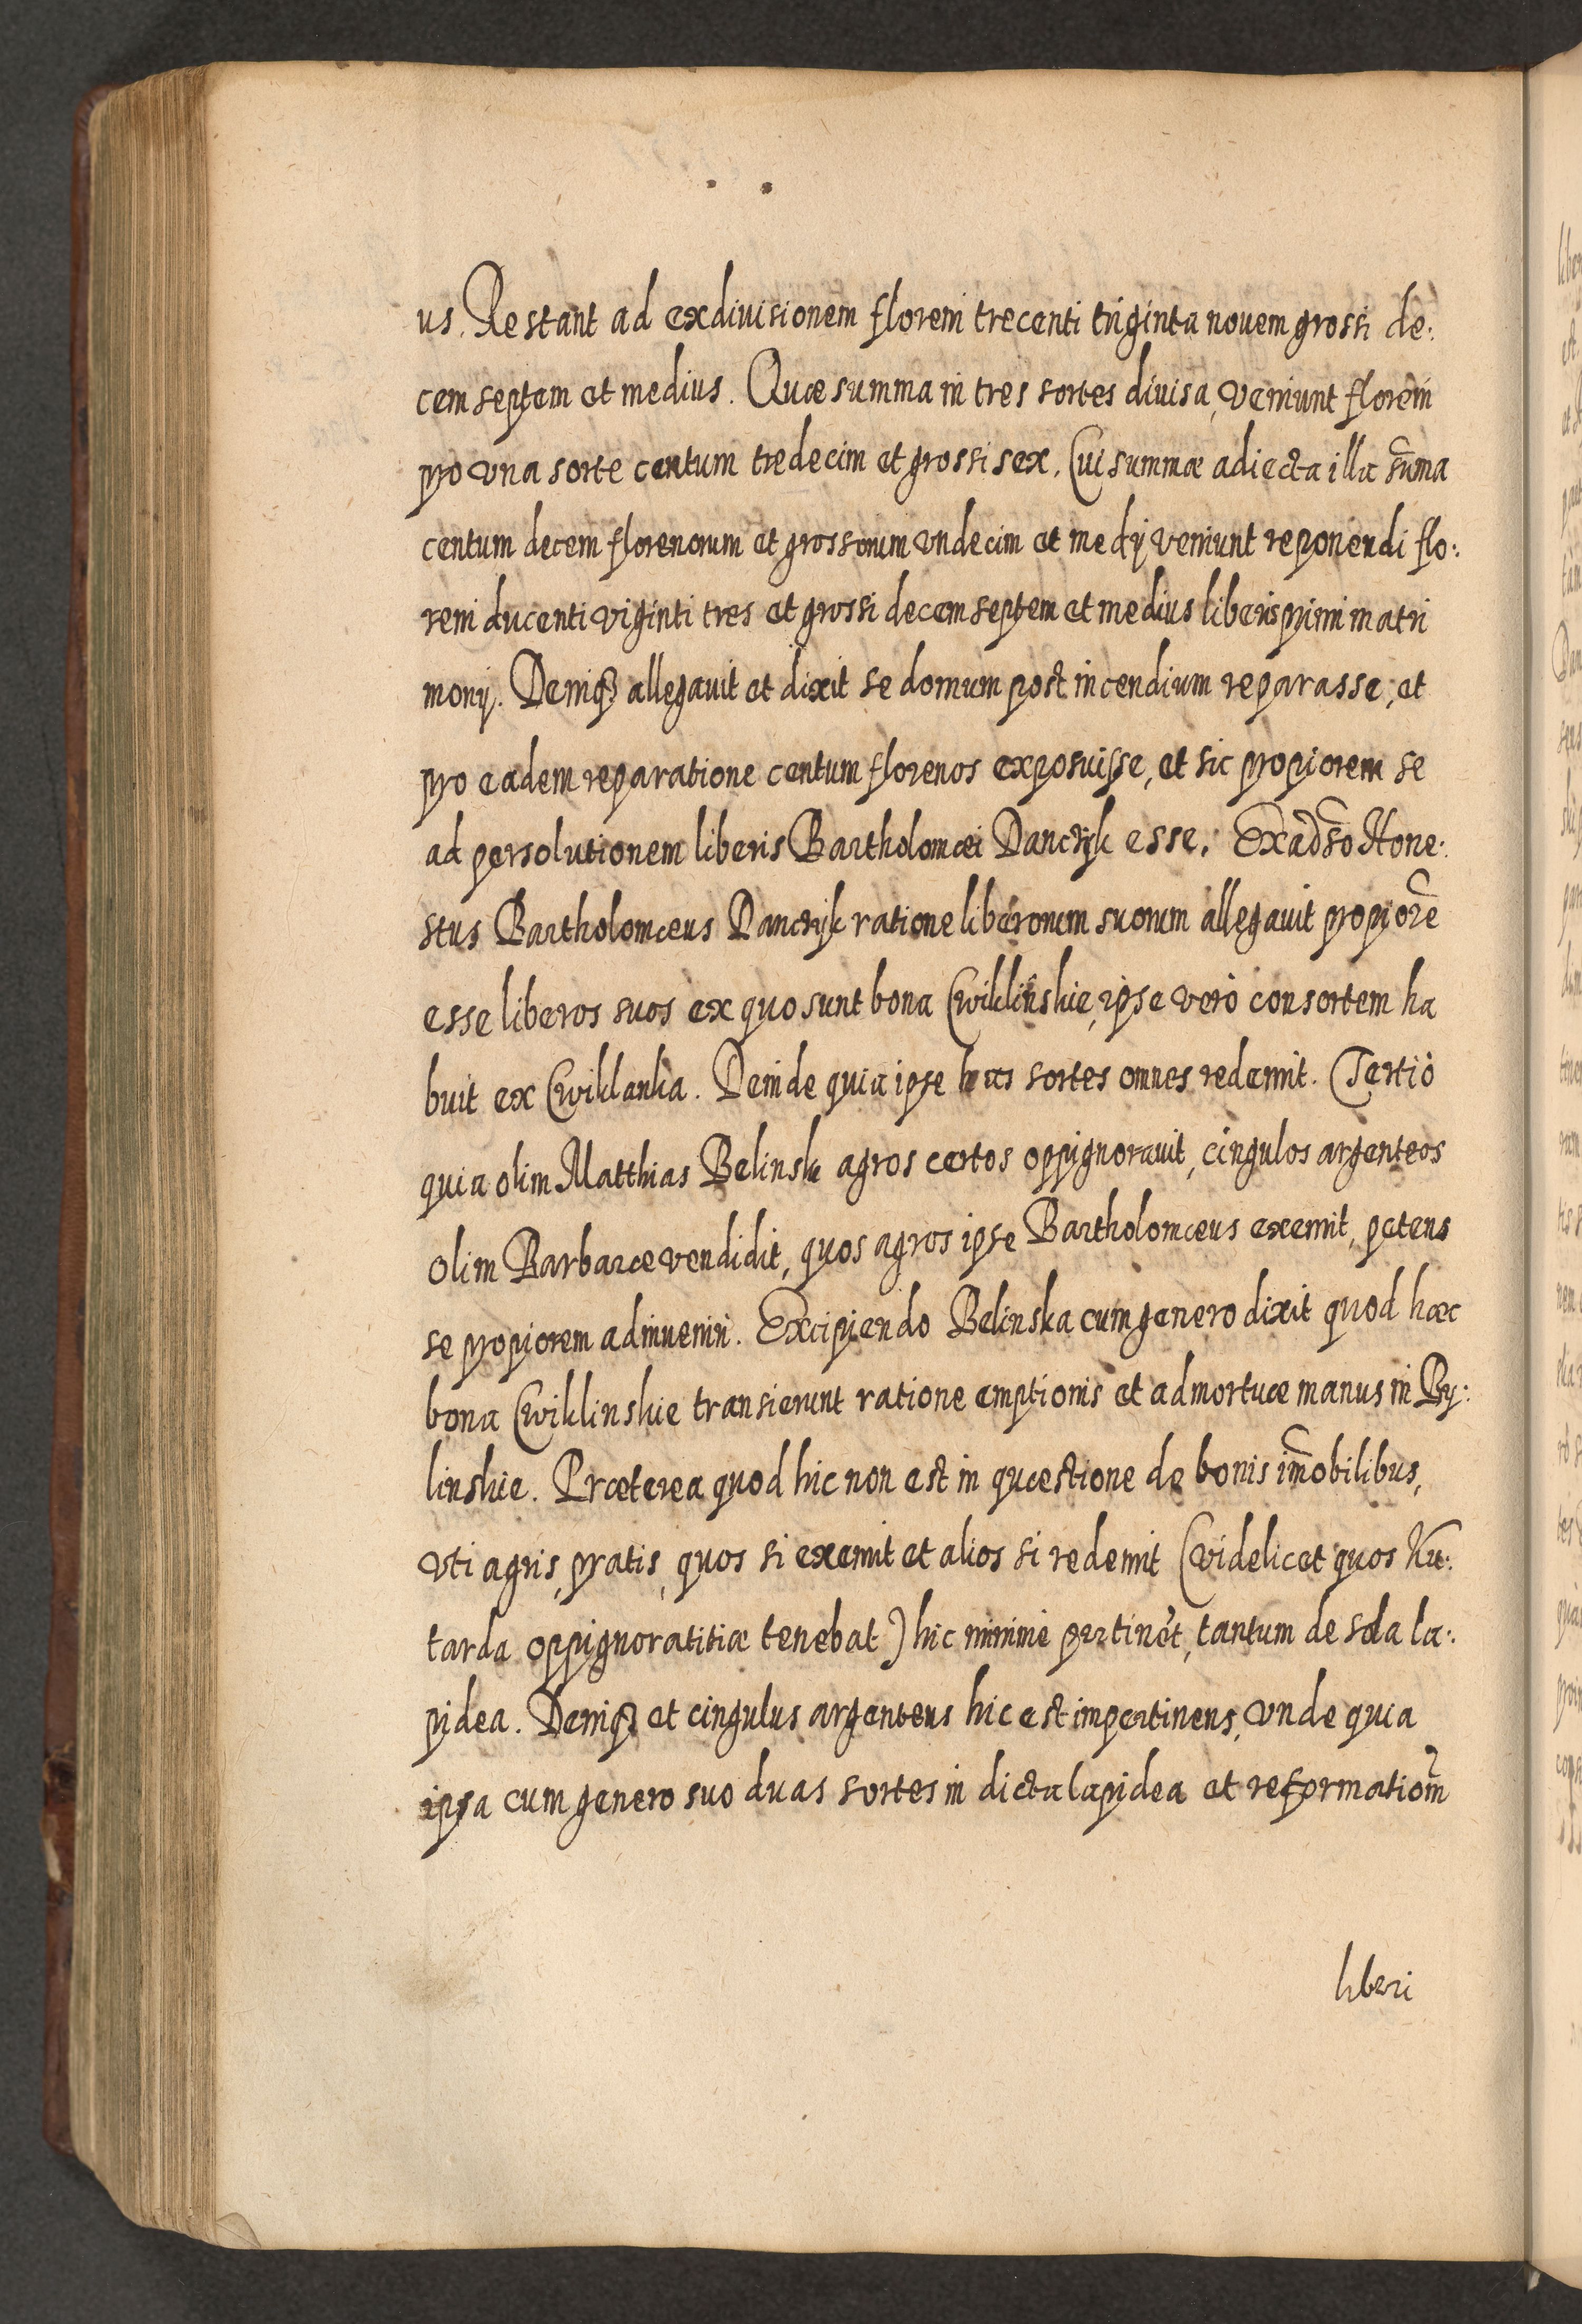 us. Restant ad exdiuisionem floreni trecenti triginta nouem grossi de:
cem septem et medius. Quæ summa in tres sortes diuisa, veniunt floreni
pro vna sorte centum tredecim et grossi sex. Cui summæ adiecta illa sũma
centum decem florenorum et grossorum vndecim et medij veniunt reponendi flo:
reni ducenti viginti tres et grossi decem septem et medius liberis primi matri
monij. Deniqꝫ allegauit et dixit se domum post incendium reparasse, et
pro eadem reparatione centum florenos exposuisse, et sic propiorem se
ad persolutionem liberis Bartholomæi Danczyk esse. Exadũso Hone:
stus Bartholomæus Danczyk ratione liberorum suorum allegauit propiorẽ
esse liberos suos ex quo sunt bona Cwiklinskie, ipse verò consortem ha
buit ex Cwiklanka. Deinde quia ipse has sortes omnes redemit. Tertiò
quia olim Matthias Belinski agros certos oppignorauit, cingulos argenteos
olim Barbaræ vendidit, quos agros ipse Bartholomæus exemit, petens
se propiorem adinueniri. Excipiendo Belinska cum genero dixit quod hæc
bona Cwiklinskie transierunt ratione emptionis et ad mortuæ manus in By:
linskie. Præterea quod hic non est in quæstione de bonis im̃obilibus,
vti agris, pratis, quos si exemit et alios si redemit (videlicet quos Ku:
tarda oppignoratitiæ tenebat) hic minimè pertinet, tantum de sola la:
pidea. Deniqꝫ et cingulus argenteus hic est impertinens, vnde quia
ipsa cum genero suo duas sortes in dicta lapidea et reformationem̃
liberi